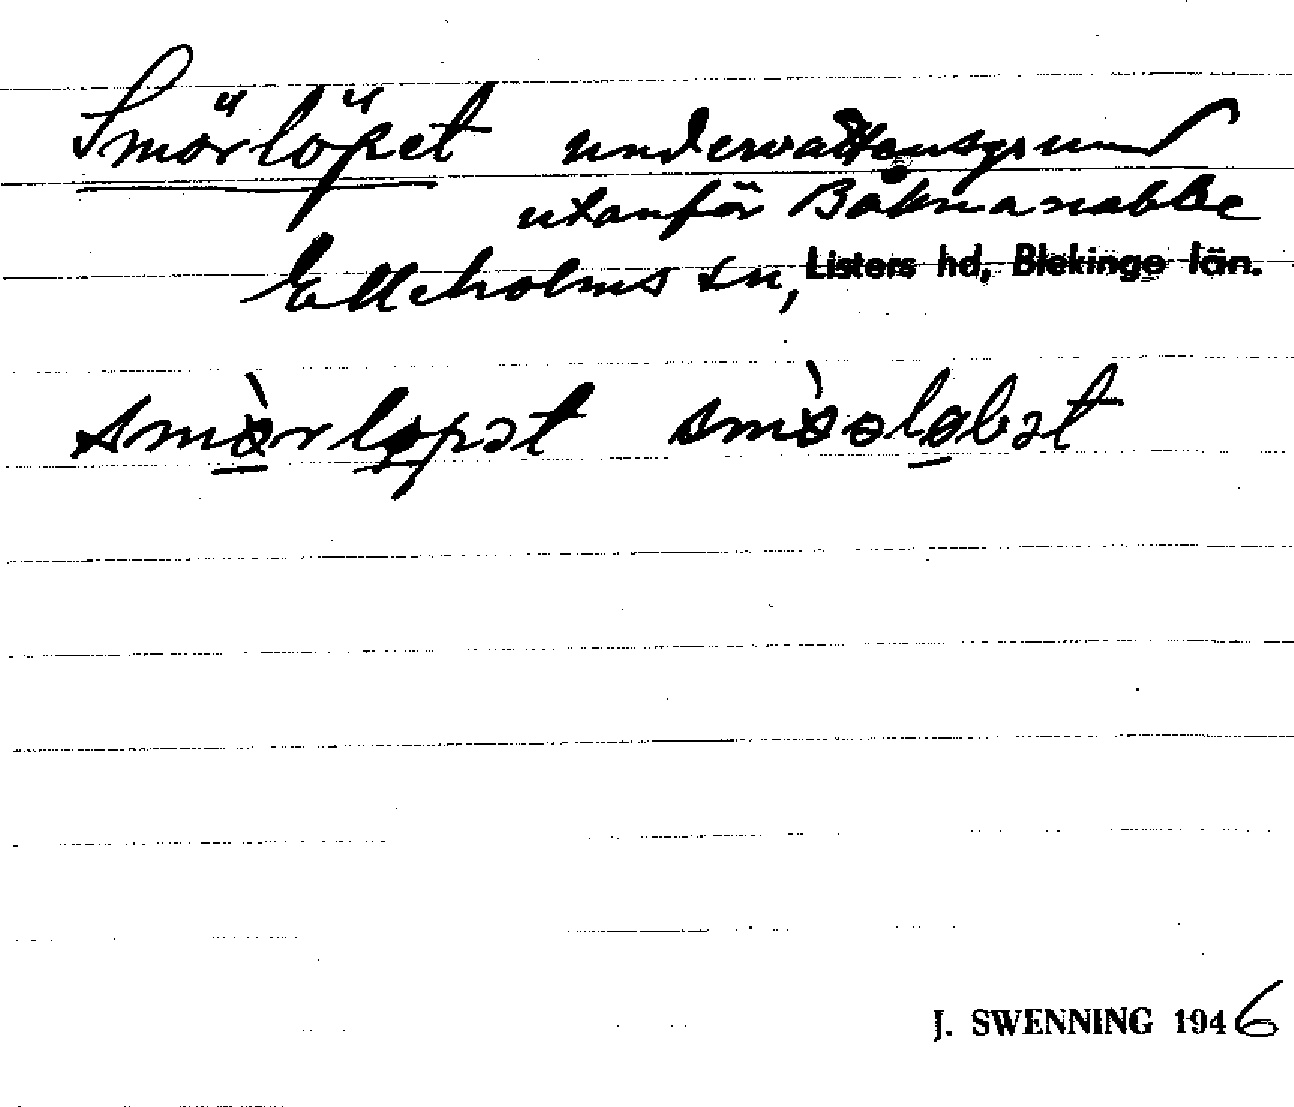 Smörlöpet undervattensgrund
utanför Båknanabbe
Elleholms sn, Listers hd, Blekinge län.
smò̱rlo̱pət smòo̱lo̱bət
J. SWENNING 1946